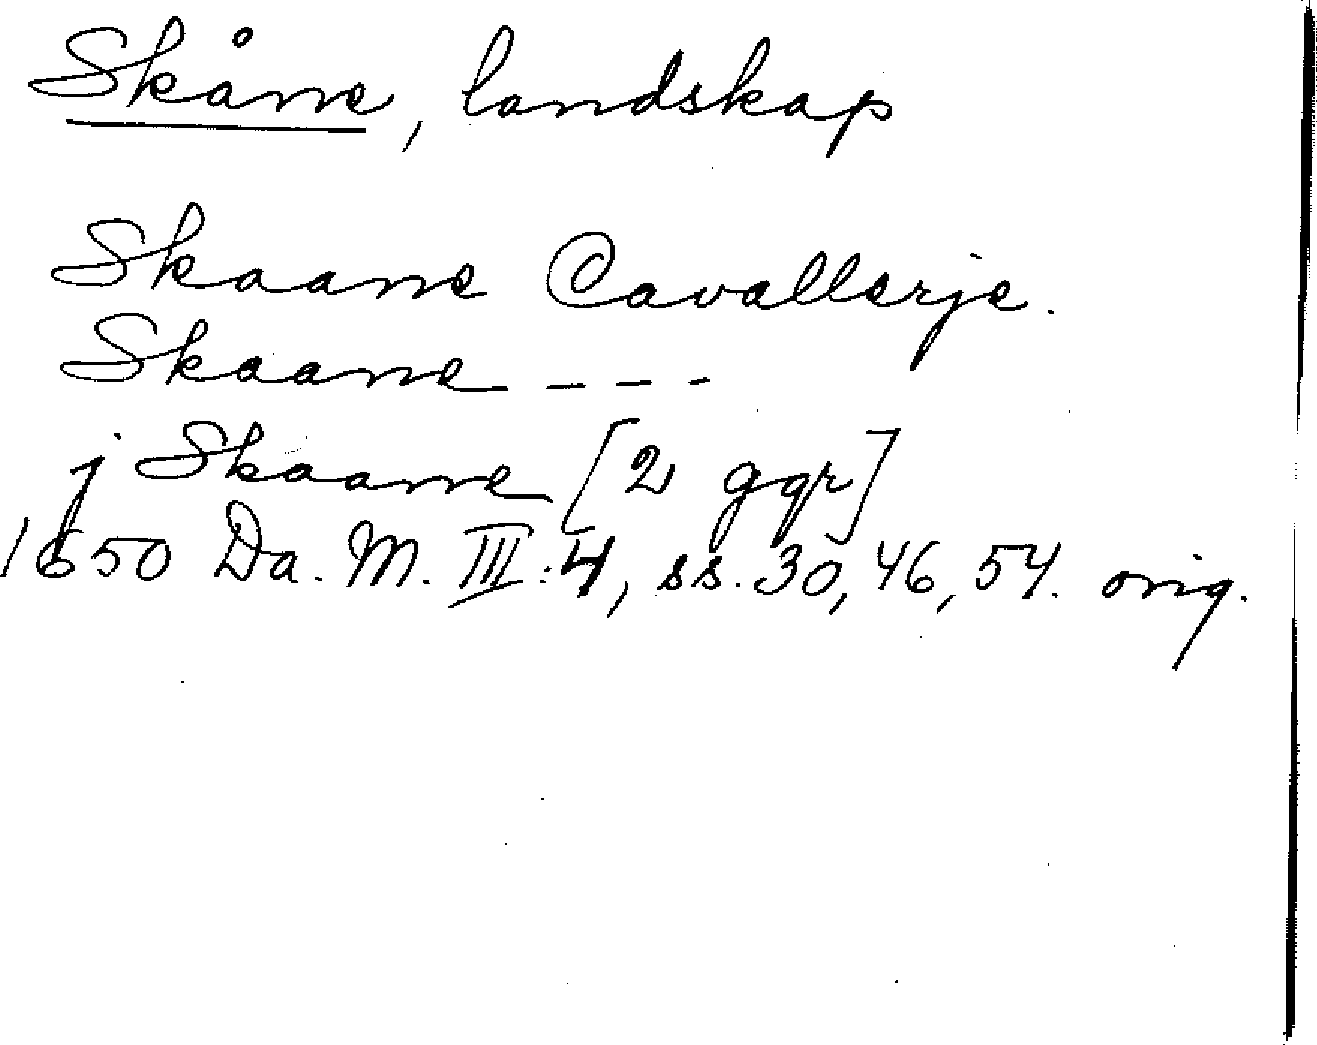 Skåne, landskap
Skaane Cavallerje.
Skaane - - - -
j Skaane [2 ggr]
1650 Da. M. III:4, ss. 30, 46, 54. orig.